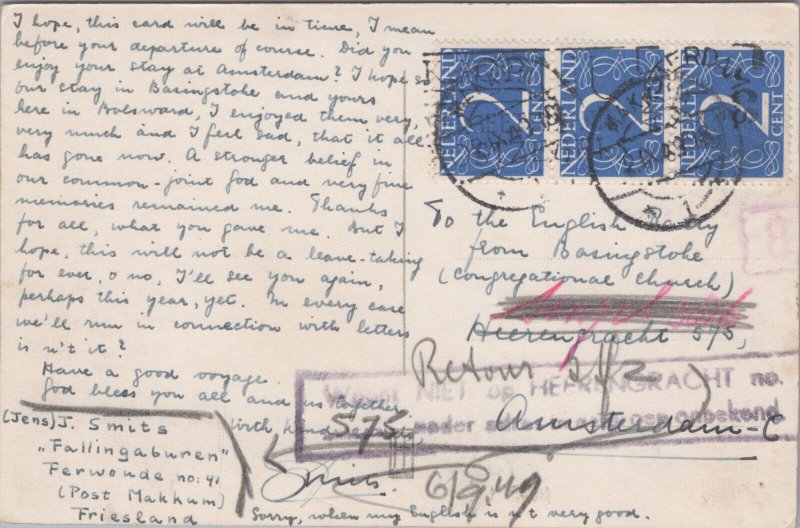 I hope, this card will be in time, I mean
before your departure of course. Did you
enjoy your stay at Amsterdam? I hope so
our stay in Basingstoke and yours
here in Bolsward, I enjoyed them very,
very much and I feel sad, that it all
has gone now. A stronger belief in
our common-joint God and very fine
memories remained me. Thanks
for all, what you gave me. But I
hope, this will not be a leave-taking
for ever, o no, I'll see you again,
perhaps this year, yet. In every case
we'll run in connection with letters
is n't it?
Have a good voyage.
God bless you all and us together
With kind
Smits.
Sorry, when my English is n't very good.
(Jens) J. Smits
"Fallingaburen"
Ferwoude no: 41
(Post Makkum)
Friesland
NEDERLAND 2 CENT
NEDERLAND 2 CENT
NEDERLAND 2 CENT
To the English
from Basingstoke
(Congregational Church)
Heerengracht 575,
Amsterdam-C
Retour
NIET op HEERENGRACHT no.
575
ader bekend
6/9 '49